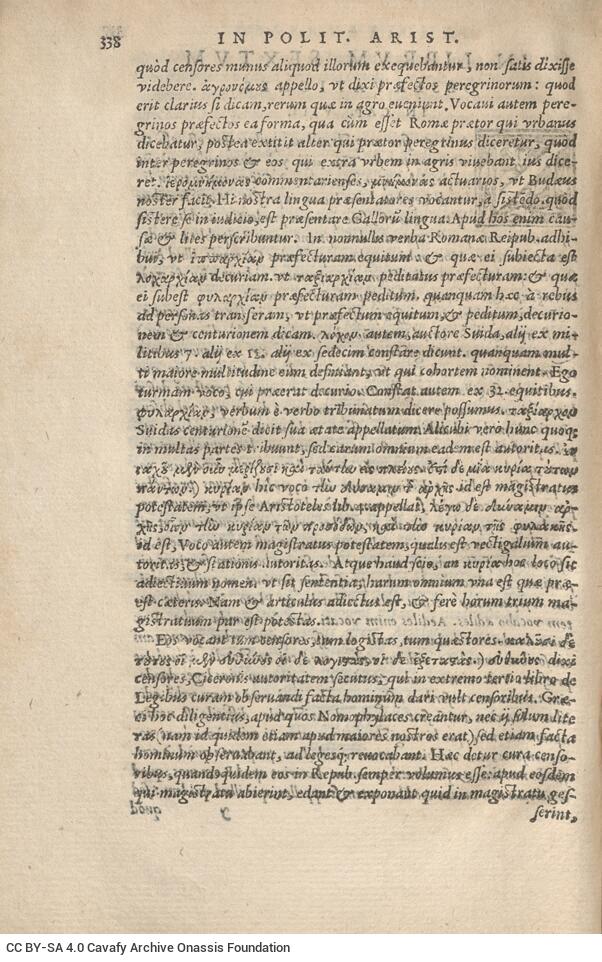 338 IN POLIT. ARIST.
quòd censores munus aliquod illorum exequebantur, non satis dixisse
videbere. ἀγρονόμȣς appello, vt dixi præfectos peregrinorum: quod
erit clarius si dicam, rerum quæ in agro eueniunt. Vocaui autem pere-
grinos præfectos ea forma, qua cùm esset Romæ prætor qui vrbanus
dicebatur, postea extitit alter qui prætor peregrinus diceretur, quòd
inter peregrinos & eos qui extra vrbem in agris viuebant, ius dice-
ret. ἱερομνήμονας commentarienses, μνήμονας actuarios, vt Budæus
noster facit. Hi nostra lingua præsentatores vocantur, à sistedo. quod
sistere se in iudicio, est præsentare Gallorũ lingua. Apud hos enim cau-
sæ & lites perscribuntur. In nonnullis verba Romanæ Reipub. adhi-
bui, vt ἱππαρχίαν præfecturam equitum: & quæ ei subiecta est
λοχαρχίαν decuriam. vt ταξιαρχίαν peditatus præfecturam: & quæ
ei subest φυλαρχίαν præfecturam peditum, quanquam hæc à rebus
ad personas transferam, vt præfectum equitum & peditum, decurio-
nem & centurionem dicam. λόχον autem, auctore Suida, alij ex mi-
litibus alij ex alij ex sedecim constare dicunt. quanquam mul-
ti maiore multitudine eum definiant, vt qui cohortem nominent. Ego
turmam voco, cui præerat decurio. Constat autem ex 32. equitibus.
φυλαρχίαν, verbum è verbo tribunatum dicere possumus. ταξίαρχον
Suidas centurionẽ dicit sua ætate appellatum. Alicubi verò hunc quoq;
in multas partes tribuunt, sed earum omnium eadem est autoritas.
κυρίαν hic voco τὴν δύναμιν τῆς ἀρχῆς id est magistratus
potestatem, vt ipse Aristoteles lib. 4. appellat, λέγω δὲ δύναμιν ἀρ-
χῆς, οἷον τὴν κυρίαν τῶν προσόδων, καὶ τὴν κυρίαν τῆς φυλακῆς.
id est, Voco autem magistratus potestatem, qualis est vectigalium au-
toritas, & stationis autoritas. Atque haud scio, an κυρία hoc loco sit
adiectiuum nomen. vt sit sententia, harum omnium vna est quæ præ-
est cæteris. Nam & articulus adiectus est, & ferè horum trium ma-
gistratuum par est potestas.
Eos vocant tum censores, tum logistas, tum quæstores. καλοῦσι δὲ
τούτȣς οἱ μὲν εὐθύνȣς οἱ δὲ λογιστὰς, οἱ δὲ ἐξεταστάς.) εὐθύνȣς dixi
censores, Ciceronis autoritatem secutus, qui in extremo tertio libro de
Legibus curam obseruandi facta hominum dari vult censoribus. Græ-
ci hoc diligentius, apud quos Nomophylaces creantur, nec ij solum lite
ras (nam id quidem etiam apud maiores nostros erat) sed etiam facta
hominum obseruabant, ad legesq; reuocabant. Hæc detur cura censo-
ribus, quandoquidem eos in Repub. semper volumus esse: apud eosdem
qui magistratu abierint, edant & exponant quid in magistratu ges-
serint,
CC BY-SA 4.0 Cavafy Archive Onassis Foundation